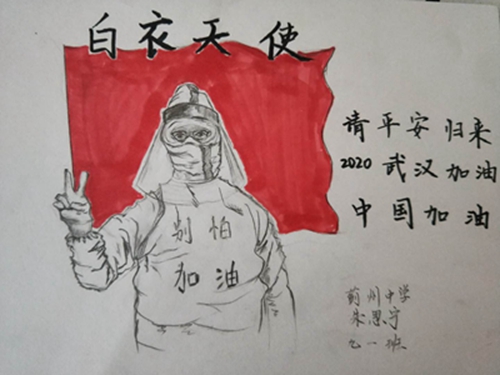 白衣天使
请平安归来
2020 武汉加油
中国加油
别怕
加油
蓟州中学
朱恩宇
九一班